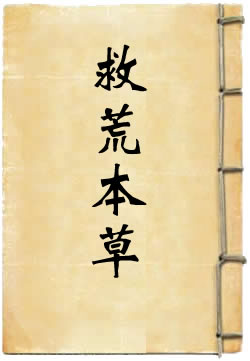 救荒本草